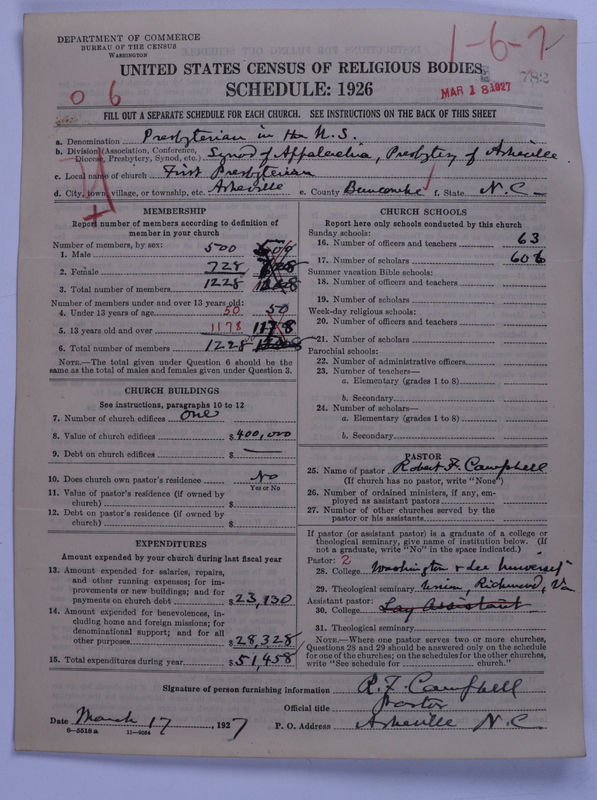 DEPARTMENT OF COMMERCE
BUREAU OF THE CENSUS
WASHINGTON
1-6-2
782
UNITED STATES CENSUS OF RELIGIOUS BODIES
SCHEDULE: 1926
MAR 18 1927
0 6
FILL OUT A SEPARATE SCHEDULE FOR EACH CHURCH. SEE INSTRUCTIONS ON THE BACK OF THIS SHEET
a. Denomination Presbyterian in the U.S.
b. Division (Association, Conference, Diocese, Presbytery, Synod, etc.) Synod of Appalachia, Presbytery of Asheville
c. Local name of church First Presbyterian
d. City, town, village, or township, etc. Asheville e. County Buncombe f. State N.C.
MEMBERSHIP
Report number of members according to definition of
member in your church
Number of members, by sex:
1. Male 500 500
2. Female 728
3. Total number of members 1228
Number of members under and over 13 years old:
4. Under 13 years of age 50 50
5. 13 years old and over 1178 1178
6. Total number of members 1228
NOTE.—The total given under Question 6 should be the
same as the total of males and females given under Question 3.
CHURCH BUILDINGS
See instructions, paragraphs 10 to 12
7. Number of church edifices one
8. Value of church edifices $400,000
9. Debt on church edifices $ —
10. Does church own pastor's residence No
Yes or No
11. Value of pastor's residence (if owned by
church) $
12. Debt on pastor's residence (if owned by
church) $
EXPENDITURES
Amount expended by your church during last fiscal year
13. Amount expended for salaries, repairs,
and other running expenses; for im-
provements or new buildings; and for
payments on church debt $23,130
14. Amount expended for benevolences, in-
cluding home and foreign missions; for
denominational support; and for all
other purposes $28,328
15. Total expenditures during year $51,458
CHURCH SCHOOLS
Report here only schools conducted by this church
Sunday schools:
16. Number of officers and teachers 63
17. Number of scholars 606
Summer vacation Bible schools:
18. Number of officers and teachers
19. Number of scholars
Week-day religious schools:
20. Number of officers and teachers
21. Number of scholars
Parochial schools:
22. Number of administrative officers
23. Number of teachers—
a. Elementary (grades 1 to 8)
b. Secondary
24. Number of scholars—
a. Elementary (grades 1 to 8)
b. Secondary
PASTOR
25. Name of pastor Robert F. Campbell
(If church has no pastor, write "None")
26. Number of ordained ministers, if any, em-
ployed as assistant pastors
27. Number of other churches served by the
pastor or his assistants
If pastor (or assistant pastor) is a graduate of a college or
theological seminary, give name of institution below. (If
not a graduate, write "No" in the space indicated.)
Pastor: 2
28. College Washington & Lee University
29. Theological seminary Union, Richmond, Va
Assistant pastor:
30. College Lay Assistant
31. Theological seminary
NOTE.—Where one pastor serves two or more churches,
Questions 28 and 29 should be answered only on the schedule
for one of the churches; on the schedules for the other churches,
write "See schedule for church."
Signature of person furnishing information R. F. Campbell
Official title Pastor
Date March 17, 1927 P. O. Address Asheville N.C.
8-5518 a 11-9034